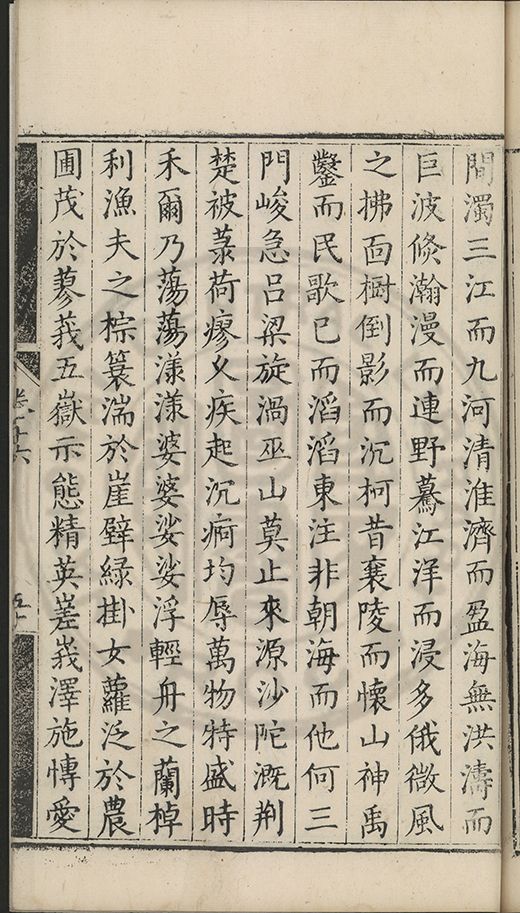 間濁三江而九河清淮濟而盈海無洪濤而
巨波倏瀚漫而連野驀江洋而浸多俄微風
之拂面樹倒影而沉柯昔襄陵而懷山神禹
鑿而民歌已而滔滔東注非朝海而他何三
門峻急吕梁旋渦巫山莫止來源沙陀溉荆
楚被菉荷瘳乂疾起沉痾均辱萬物特盛時
禾爾乃蕩蕩漾漾婆婆娑娑浮輕舟之蘭棹
利漁夫之棕簑湍於崖壁緑掛女蘿泛於農
圃茂於蓼莪五嶽示態精英嵳峩澤施愽愛